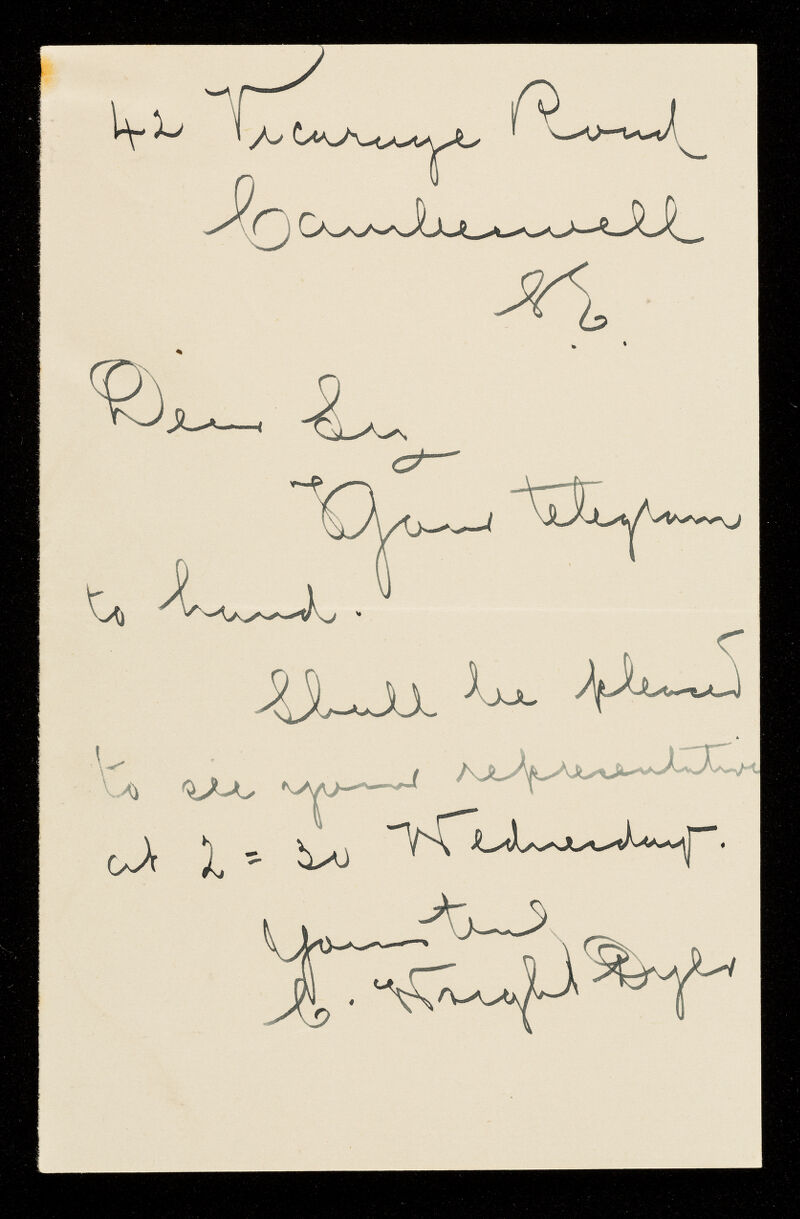 42 Vicarage Road
Camberwell
S.E.
Dear Sir,
Your telegram
to hand.
Shall be pleased
to see your representative
at 2=30 Wednesday.
Yours truly
C. Wright Dyer